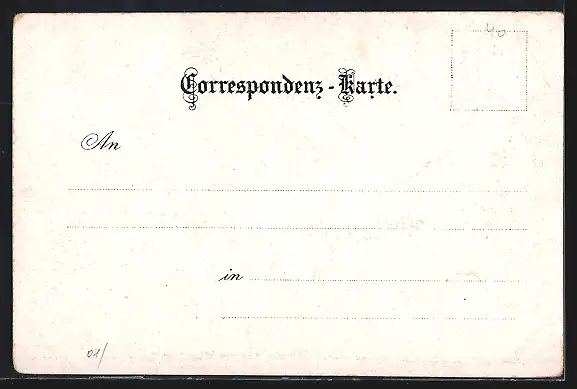 40
Correspondenz-Karte.
An
in
01/